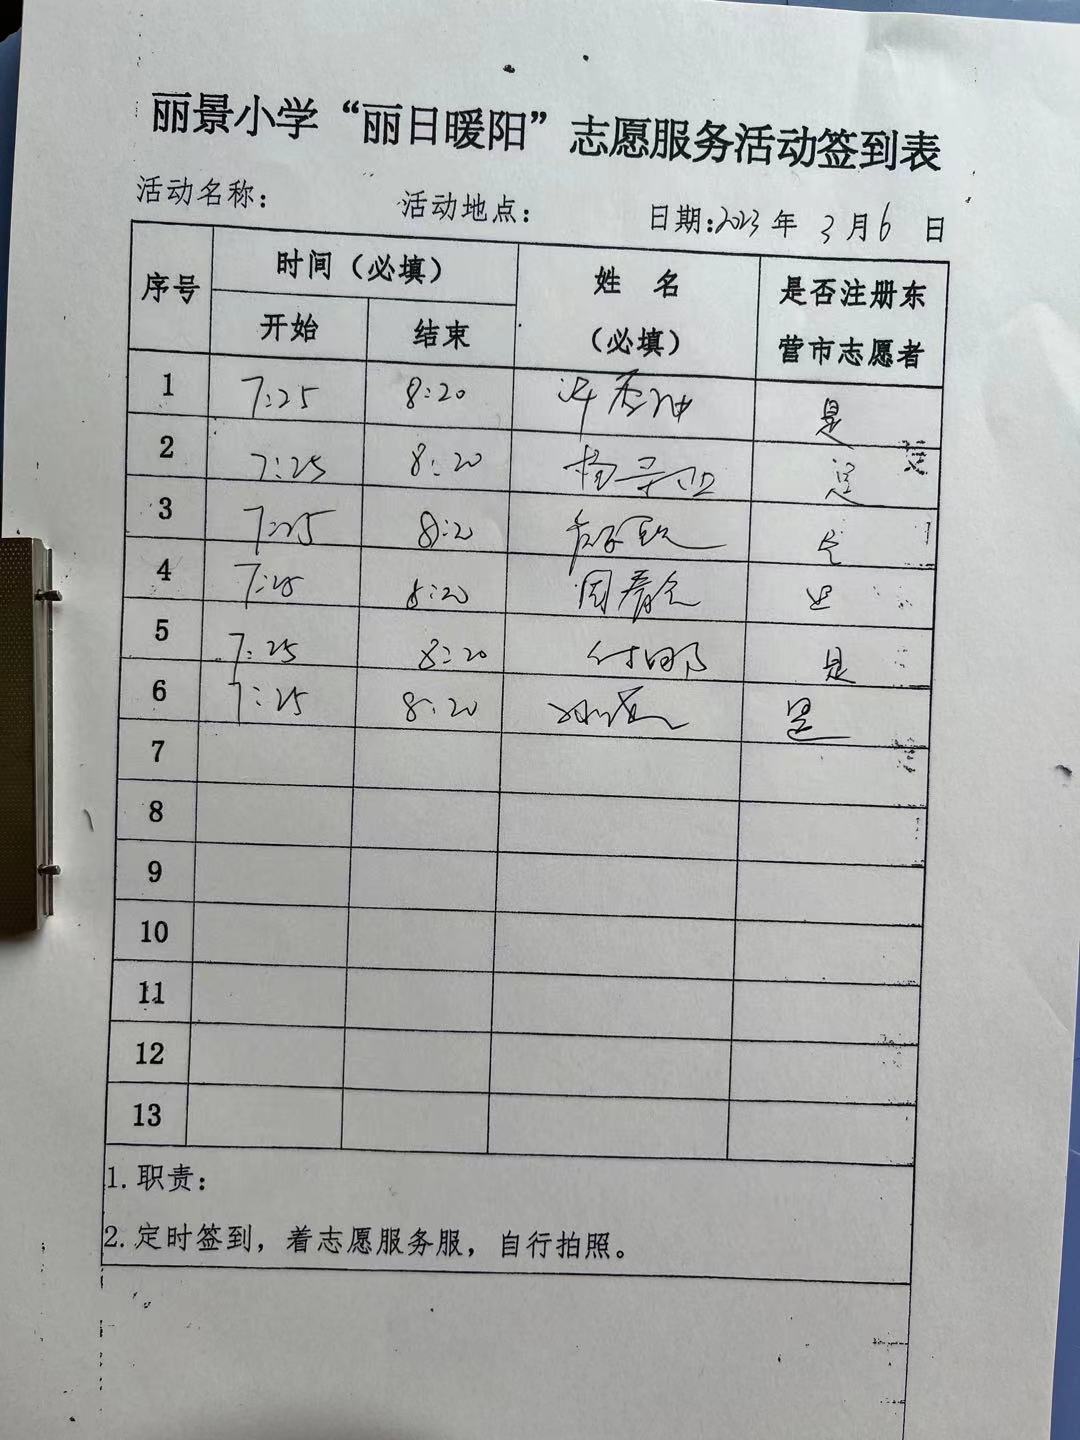 丽景小学“丽日暖阳”志愿服务活动签到表
活动名称： 活动地点： 日期:2023 年 3 月 6 日
序号 时间（必填） 姓 名（必填） 是否注册东营市志愿者
开始 结束
1 7:25 8:20 是
2 7:25 8:20 是
3 7:25 8:20
4 7:25 8:20
5 7:25 8:20 付娜 是
6 7:25 8:20 是
7
8
9
10
11
12
13
1.职责：
2.定时签到，着志愿服务服，自行拍照。